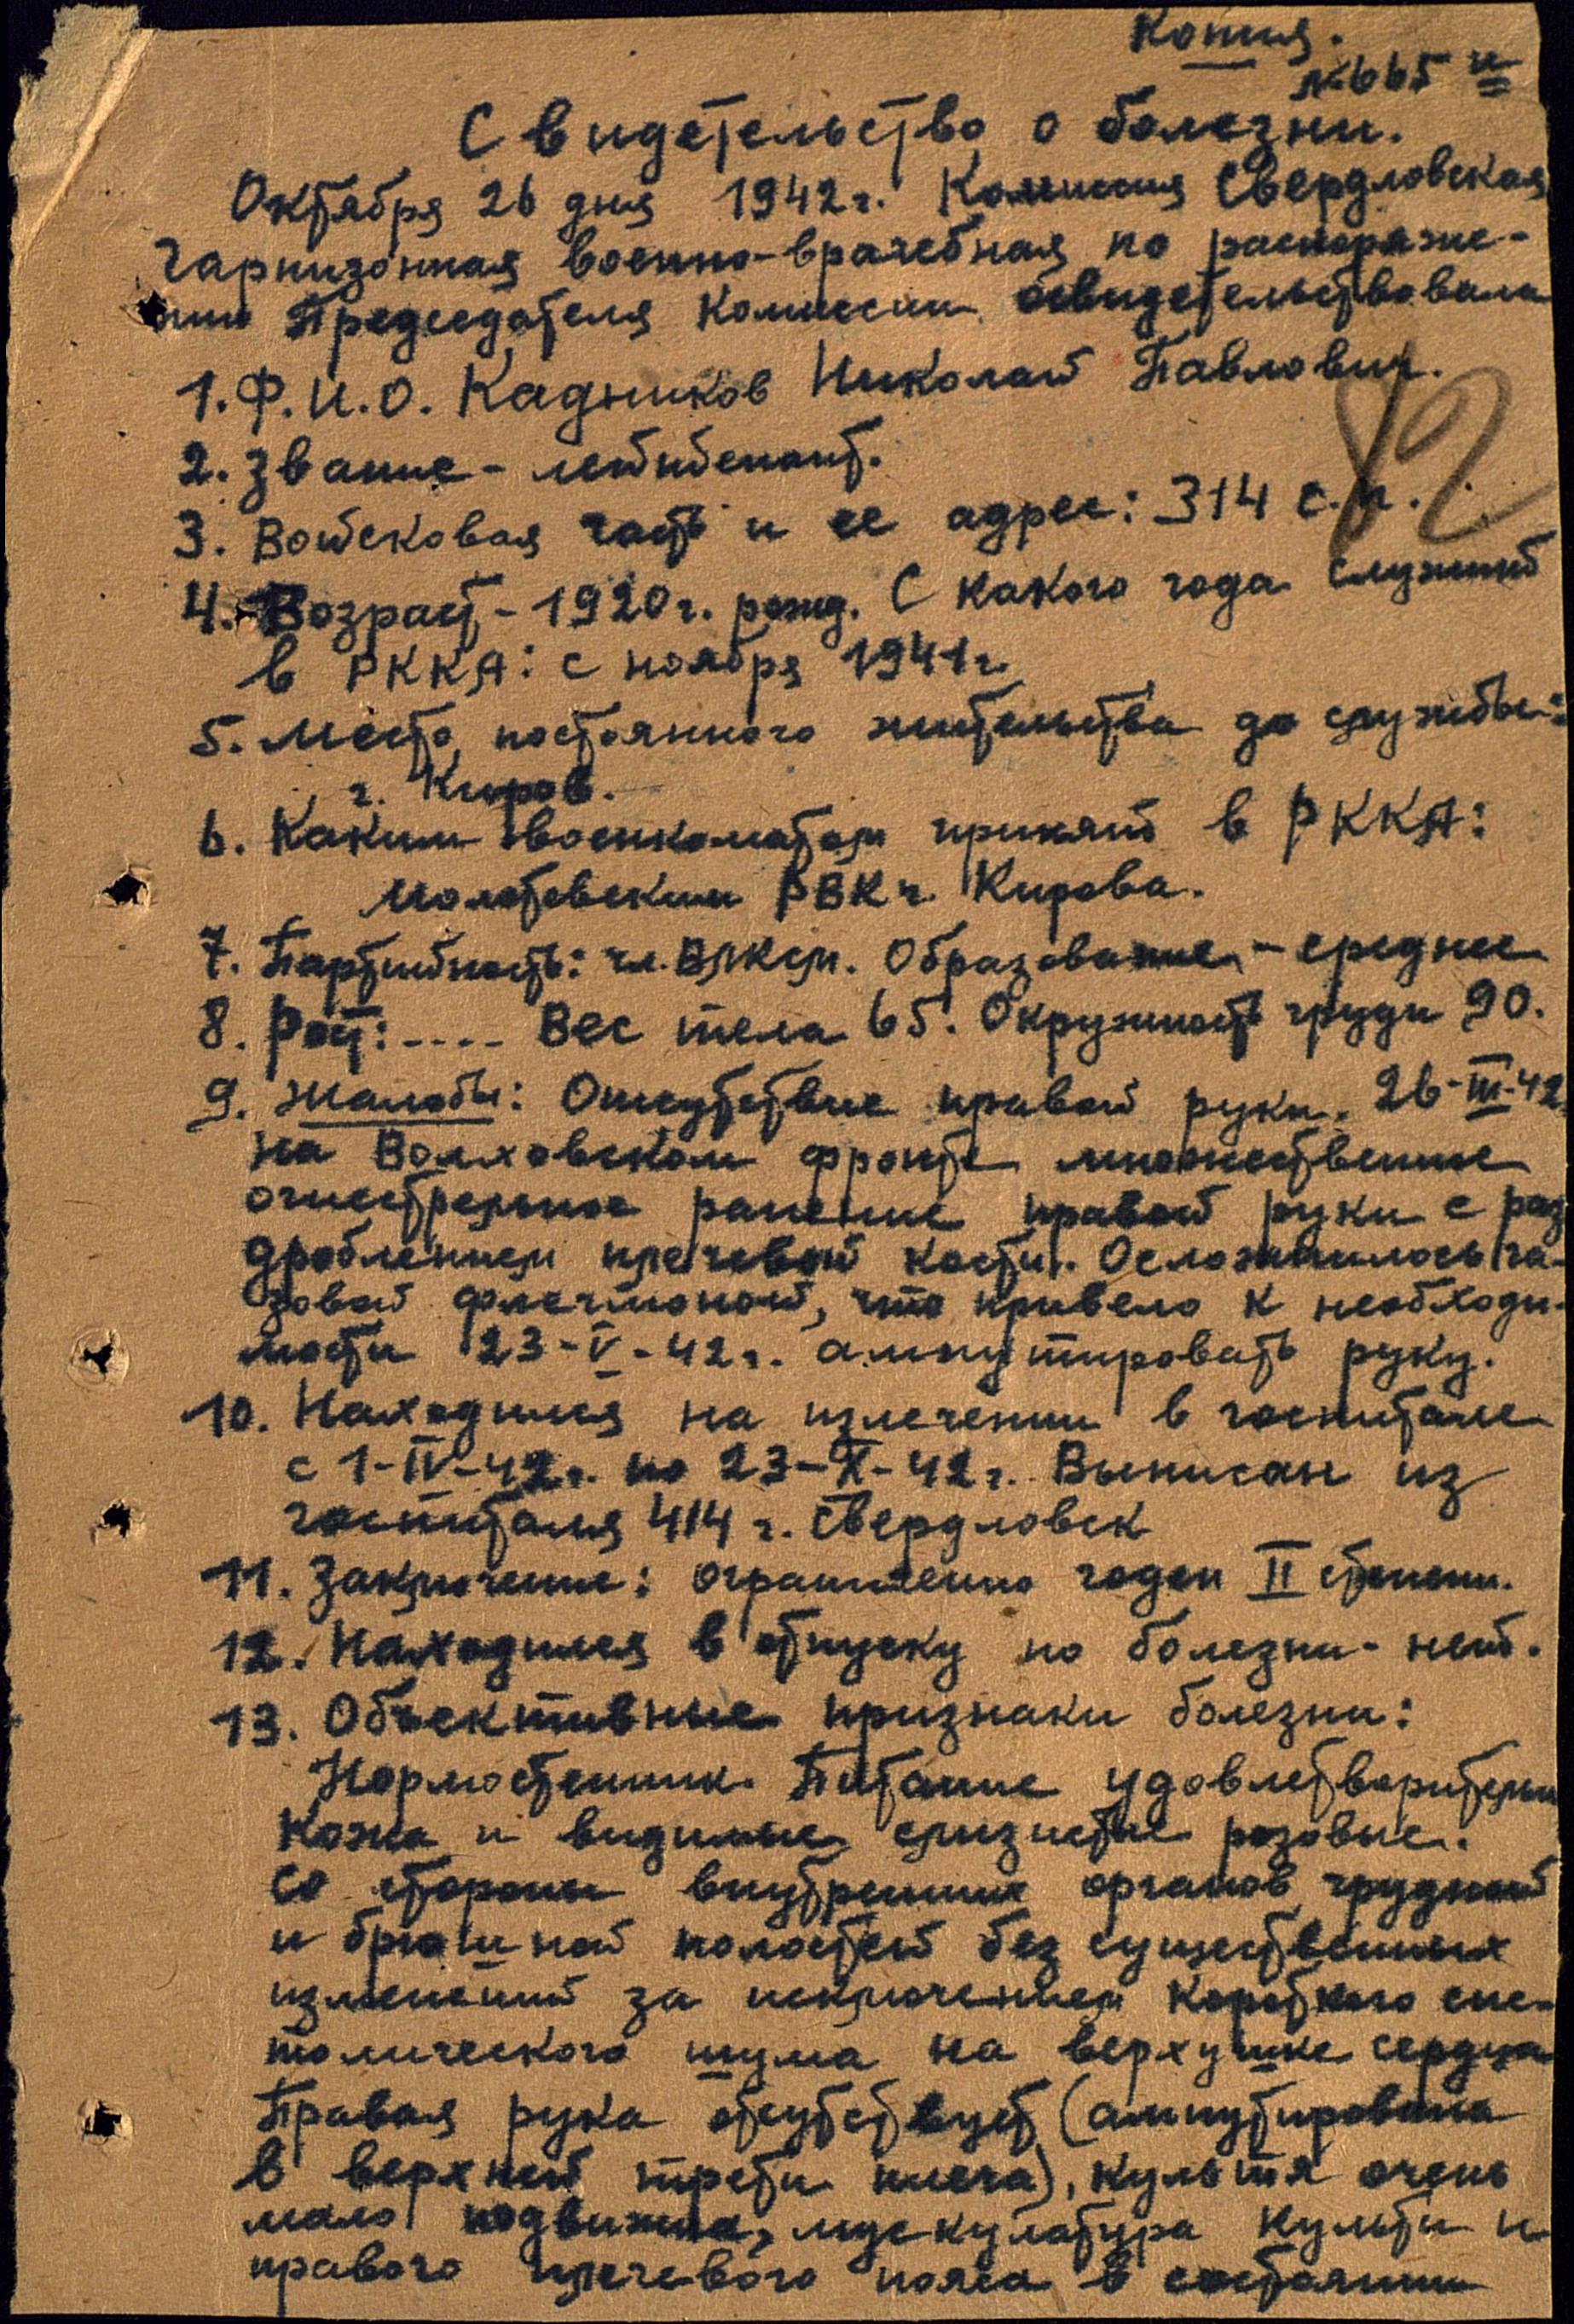 Копия.
№665 и
Свидетельство о болезни.
Октября 26 дня 1942г. Комиссия Свердловская
Гарнизонная военно-врачебная по распоряже-
нию Председателя Комиссии освидетельствовала
82
1. Ф.И.О. Кадников Николай Павлович.
2. Звание - лейтенант.
3. Войсковая часть и ее адрес: 314 с.п.
4. Возраст - 1920г. рожд. С какого года служит
в РККА: с ноября 1941г.
5. Место постоянного жительства до службы:
г. Киров.
6. Каким военкоматом принят в РККА:
Молотовским РВК г. Кирова.
7. Партийность: чл. ВЛКСМ. Образование - среднее
8. Рост: .... Вес тела 65. Окружность груди 90.
9. Жалобы: Отсутствие правой руки. 26-III-42
на Волховском фронте множественное
огнестрельное ранение правой руки с раз
дроблением плечевой кости. Осложнилось га-
зовой флегмоной, что привело к необходи-
мости 23-V-42г. ампутировать руку.
10. Находился на излечении в госпитале
с 1-IV-42г. по 23-X-42г. Выписан из
госпиталя 414 г. Свердловск
11. Заключение: ограниченно годен II степени.
12. Находился в отпуску по болезни - нет.
13. Объективные признаки болезни:
Нормостенник. Питание удовлетворительн
Кожа и видимые слизистые розовые.
Со стороны внутренних органов грудной
и брюшной полостей без существенных
изменений за исключением короткого сис-
толического шума на верхушке сердца
Правая рука отсутствует (ампутирована
в верхней трети плеча), культя очень
мало подвижна, мускулатура культи и
правого плечевого пояса в состоянии